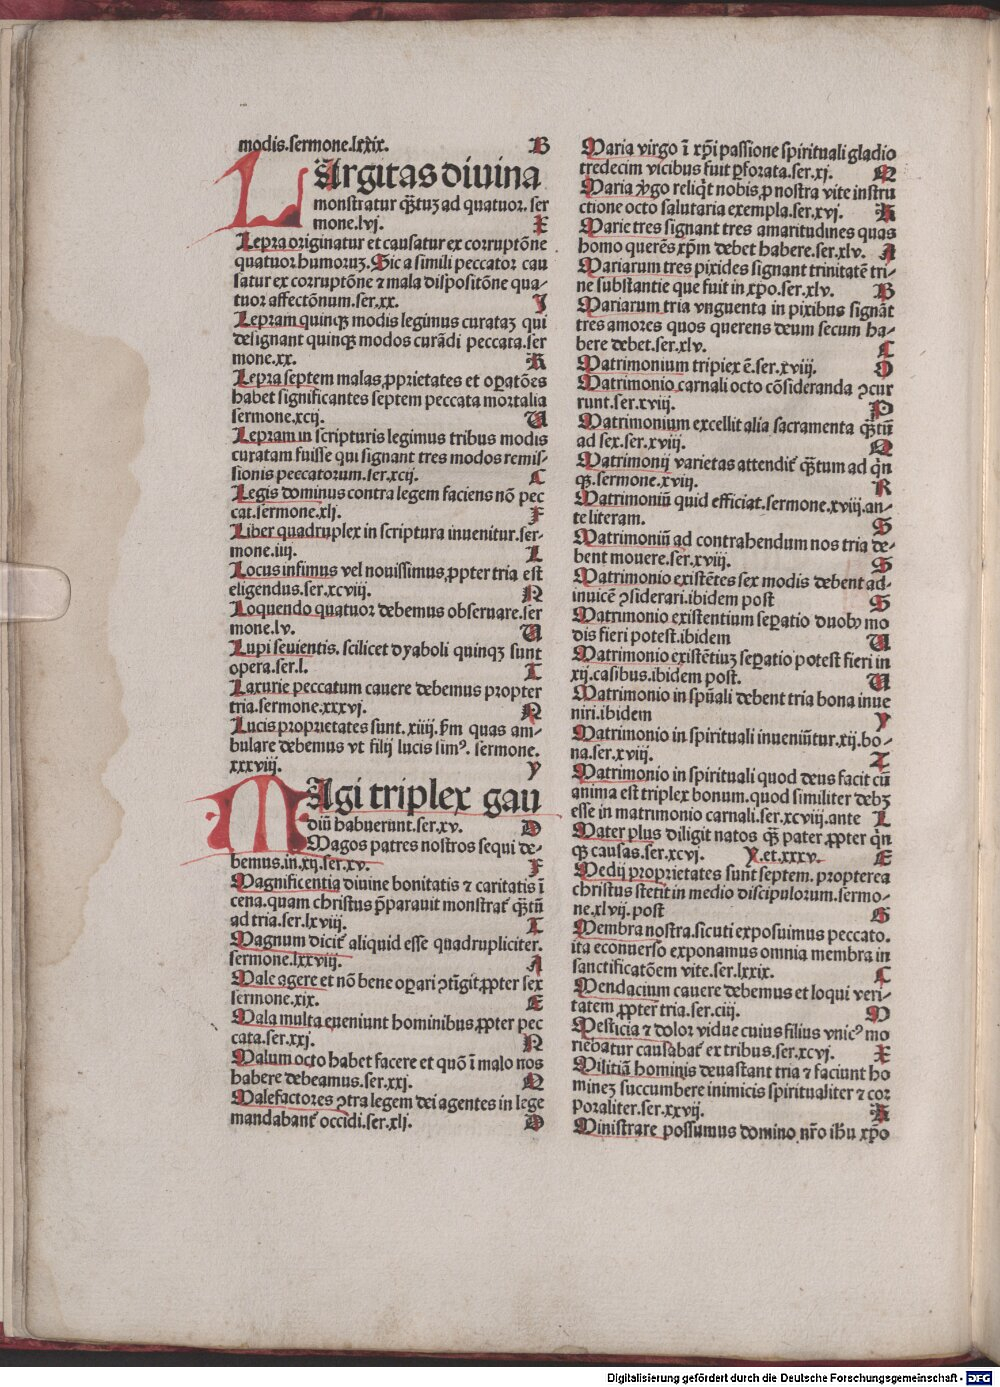 modis.sermone.lxxix. B
LArgitas diuina
monstratur qȝ̄tuȝ ad quatuor. ser
mone.lvj. X
Lepra originatur et causatur ex corruptōne
quatuor humoruȝ. Sic a simili peccator cau
satur ex corruptōne ⁊ mala dispositōne qua-
tuor affectōnum.ser.xx. J
Lepram quinqȝ modis legimus curataȝ qui
designant quinqȝ modos curādi peccata.ser
mone.xx. K
Lepra septem malas ꝓprietates et oꝑatōes
habet significantes septem peccata mortalia
sermone.xcij. U
Lepram in scripturis legimus tribus modis
curatam fuisse qui signant tres modos remis-
sionis peccatorum.ser.xcij. C
Legis dominus contra legem faciens nō pec
cat.sermone.xlj. F
Liber quadruplex in scriptura inuenitur.ser-
mone.iiij. L
Locus infimus vel nouissimus ꝓpter tria est
eligendus.ser.xcviij. N
Loquendo quatuor debemus obseruare.ser
mone.lv. U
Lupi seuientis. scilicet dyaboli quinqȝ sunt
opera.ser.l. T
Laxurie peccatum cauere debemus propter
tria.sermone.xxxvj. N
Lucis proprietates sunt. xiiij. ꝑm quas am-
bulare debemus vt filij lucis simꝰ. sermone.
xxxviij. y
MAgi triplex gau
diū habuerunt.ser.xv. D
Magos patres nostros sequi de-
bemus.in.xij.ser.xv. F
Magnificentia diuine bonitatis ⁊ caritatis ī
cena.quam christus p̄parauit monstrat᷑ qȝ̄tū
ad tria.ser.lxviij. T
Magnum dicit᷑ aliquid esse quadrupliciter.
sermone.lxxviij. A
Male agere et nō bene oꝑari ꝯtīgit ꝓpter sex
sermone.xix. E
Mala multa eueniunt hominibus ꝓpter pec
cata.ser.xxj. N
Malum octo habet facere et quō ī malo nos
habere debeamus.ser.xxj. Q
Malefactores ꝯtra legem dei agentes in lege
mandabant᷑ occīdi.ser.xlj. D
Maria virgo ī xp̄i passione spirituali gladio
tredecim vicibus fuit ꝑforata.ser.xj. M
Maria v̓go reliq̇t nobis ꝓ nostra vite instru
ctione octo salutaria exempla.ser.xvj. K
Marie tres signant tres amaritudines quas
homo querēs xp̄m debet habere.ser.xlv. A
Mariarum tres pixides signant trinitatē tri-
ne substantie que fuit in xp̄o.ser.xlv. B
Mariarum tria vnguenta in pixibus signāt
tres amores quos querens deum secum ha-
bere debet.ser.xlv. C
Matrimonium triplex ē.ser.xviij. O
Matrimonio carnali octo cōsideranda ꝯcur
runt.ser.xviij. P
Matrimonium excellit alia sacramenta qȝ̄tū
ad sex.ser.xviij. Q
Matrimonij varietas attendit᷑ qȝ̄tum ad q̇n
qȝ.sermone.xviij. R
Matrimoniū quid efficiat.sermone.xviij.an-
te literam. S
Matrimoniū ad contrahendum nos tria de-
bent mouere.ser.xviij. S
Matrimonio existētes sex modis debent ad-
inuicē ꝯsiderari.ibidem post S
Matrimonio existentium seꝑatio duobꝰ mo
dis fieri potest.ibidem U
Matrimonio existētiuȝ seꝑatio potest fieri in
xij.casibus.ibidem post. U
Matrimonio in spūali debent tria bona inue
niri.ibidem y
Matrimonio in spirituali inueniūtur.xij.bo-
na.ser.xviij. Z
Matrimonio in spirituali quod deus facit cū
anima est triplex bonum.quod similiter debȝ
esse in matrimonio carnali.ser.xcviij.ante L
Mater plus diligit natos qȝ̄ pater ꝓpter q̇n
qȝ causas.ser.xcvj. X.et.xxxv. E
Medij proprietates sunt septem. propterea
christus stetit in medio discipulorum.sermo-
ne.xlvij.post G
Membra nostra.sicuti exposuimus peccato.
ita econuerso exponamus omnia membra in
sanctificatōem vite.ser.lxxix. C
Mendacium cauere debemus et loqui veri-
tatem ꝓpter tria.ser.ciij. M
Mesticia ⁊ dolor vidue cuius filius vnicꝰ mo
riebatur causabat᷑ ex tribus.ser.xcvj. X
Militiā hominis deuastant tria ⁊ faciunt ho
mineȝ succumbere inimicis spiritualiter ⁊ cor
poraliter.ser.xxvij. K
Ministrare possumus domino nr̄o ih̄u xp̄o
Digitalisierung gefördert durch die Deutsche Forschungsgemeinschaft - DFG